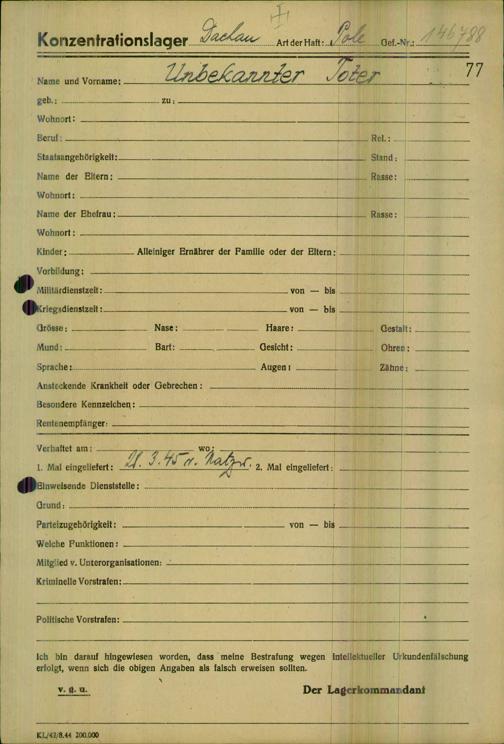 Konzentrationslager Dachau Art der Haft: Pole Gef.-Nr.: 146788
77
Name und Vorname: Unbekannter Toter
geb.: zu:
Wohnort:
Beruf: Rel.:
Staatsangehörigkeit: Stand:
Name der Eltern: Rasse:
Wohnort:
Name der Ehefrau: Rasse:
Wohnort:
Kinder: Alleiniger Ernährer der Familie oder der Eltern:
Vorbildung:
Militärdienstzeit: von — bis
Kriegsdienstzeit: von — bis
Grösse: Nase: Haare: Gestalt:
Mund: Bart: Gesicht: Ohren:
Sprache: Augen: Zähne:
Ansteckende Krankheit oder Gebrechen:
Besondere Kennzeichen:
Rentenempfänger:
Verhaftet am: wo:
1. Mal eingeliefert: 28.3.45 v. Natzw. 2. Mal eingeliefert:
Einweisende Dienststelle:
Grund:
Parteizugehörigkeit: von — bis
Welche Funktionen:
Mitglied v. Unterorganisationen:
Kriminelle Vorstrafen:
Politische Vorstrafen:
Ich bin darauf hingewiesen worden, dass meine Bestrafung wegen intellektueller Urkundenfälschung
erfolgt, wenn sich die obigen Angaben als falsch erweisen sollten.
v. g. u. Der Lagerkommandant
KL/42/8.44 200.000